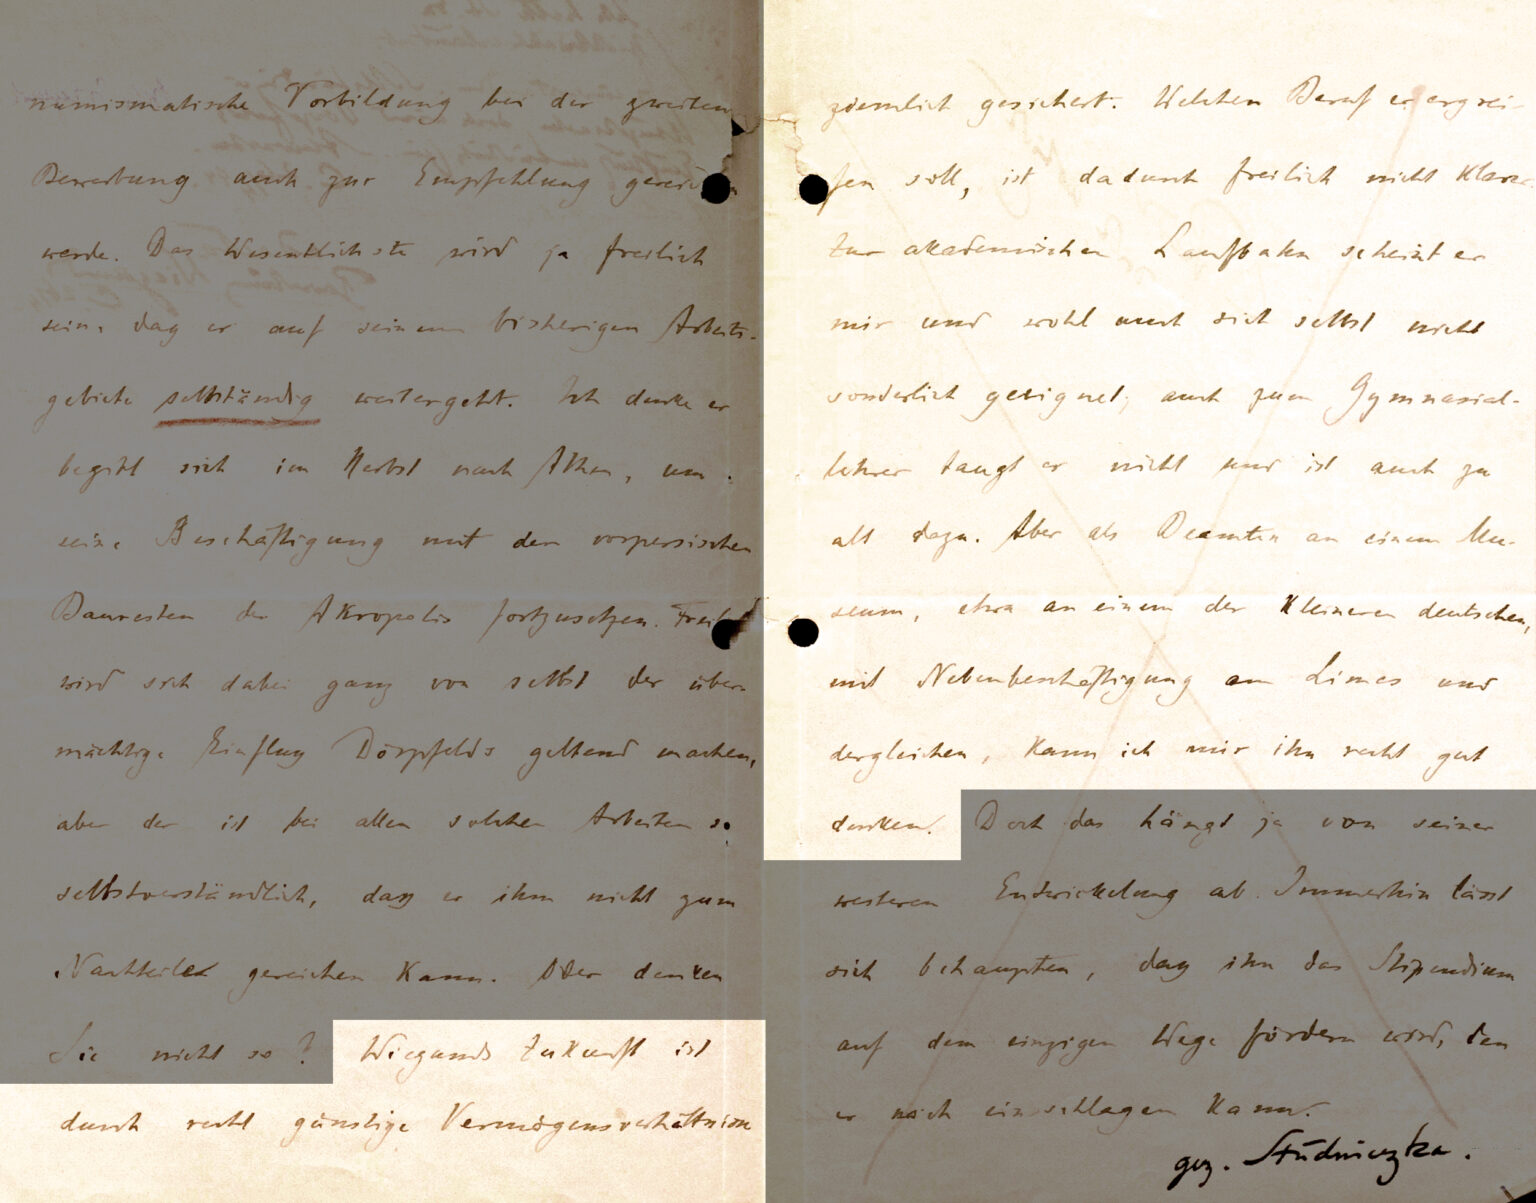 numismatische Vorbildung bei der zweiten
Bewerbung auch zur Empfehlung gereichen
werde. Das Wesentlichste wird ja freilich
sein, dass er auf seinem bisherigen Arbeits-
gebiete selbständig weitergeht. Ich denke er
begibt sich im Herbst nach Athen, um
seine Beschäftigung mit den vorpersischen
Bauresten der Akropolis fortzusetzen. Freilich
wird sich dabei ganz von selbst der über-
mächtige Einfluss Dörpfelds geltend machen,
aber der ist bei allen solchen Arbeiten so
selbstverständlich, dass er ihm nicht zum
Nachteile gereichen kann. Oder denken
Sie nicht so? Wiegands Zukunft ist
durch recht günstige Vermögensverhältnisse
ziemlich gesichert. Welchen Beruf er ergrei-
fen soll, ist dadurch freilich nicht klarer.
Zur akademischen Laufbahn scheint er
mir und wohl auch sich selbst nicht
sonderlich geeignet, auch zum Gymnasial-
lehrer taugt er nicht und ist auch zu
alt dazu. Aber als Beamten an einem Mu-
seum, etwa an einem der kleineren deutschen,
mit Nebenbeschäftigung am Limes und
dergleichen, kann ich mir ihn recht gut
denken. Doch das hängt ja von seiner
weiteren Entwickelung ab. Immerhin lässt
sich behaupten, dass ihn das Stipendium
auf dem einzigen Wege fördern wird, den
er noch einschlagen kann.
gez. Studniczka.